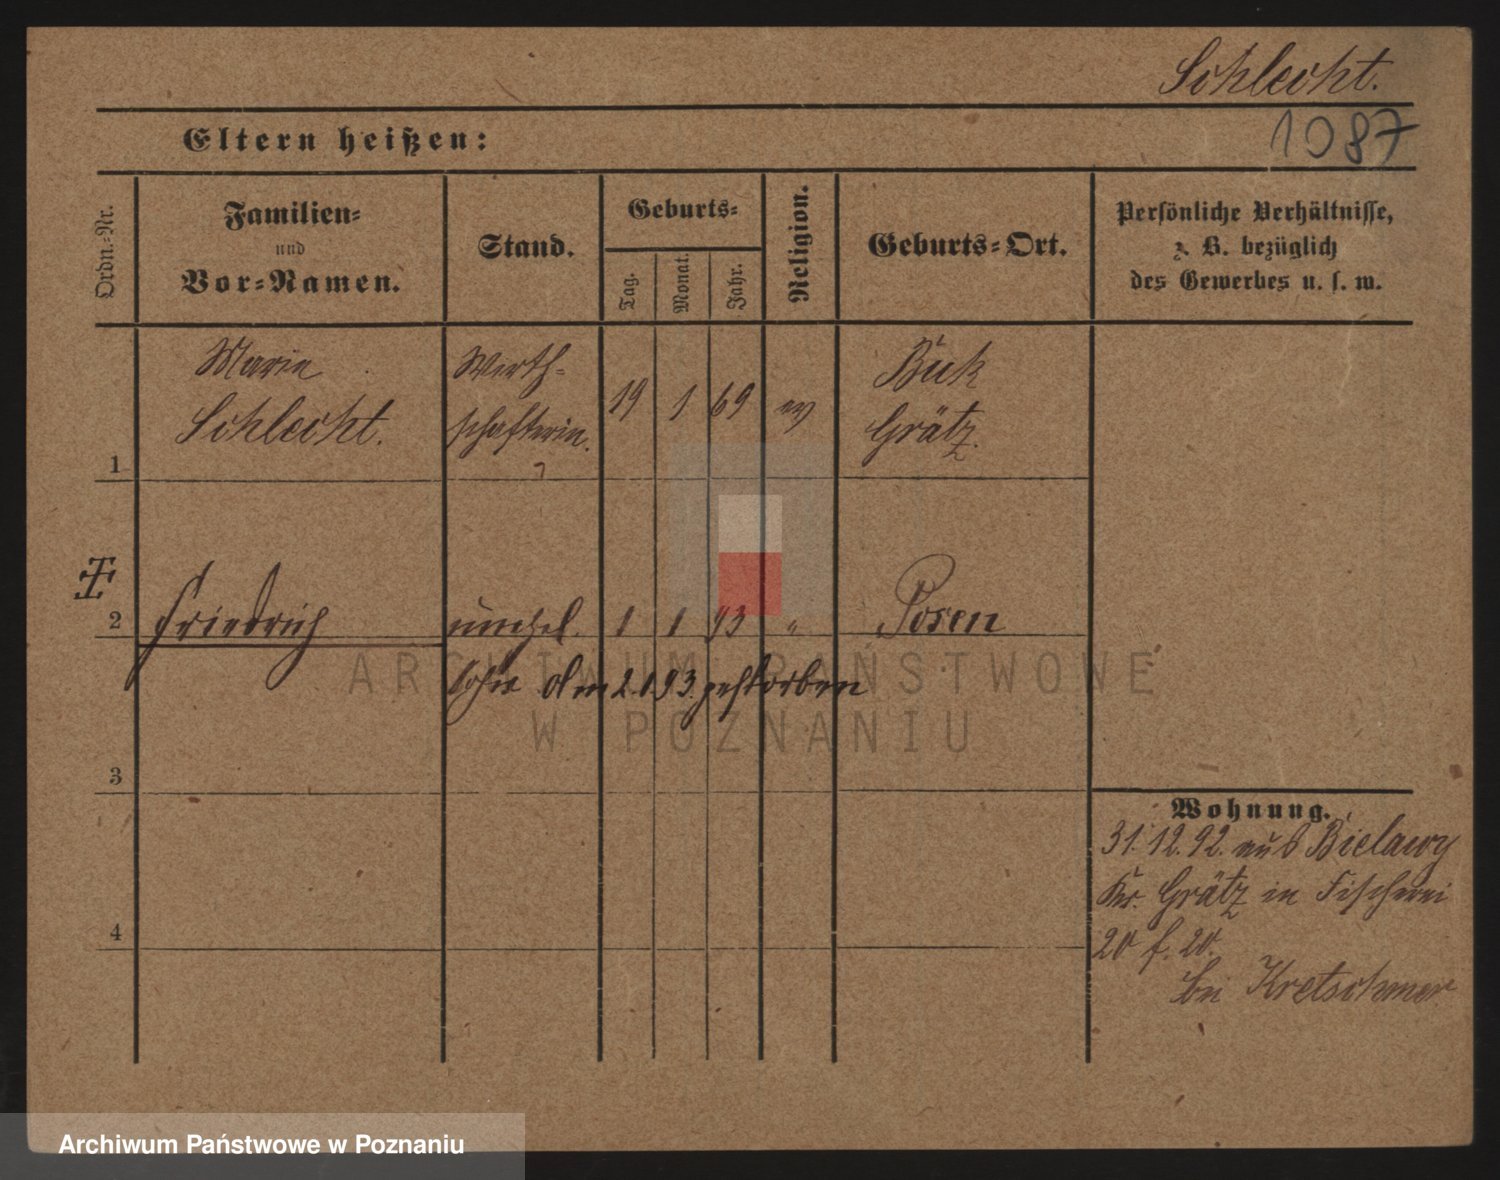 Schlecht.
1087
Eltern heißen:
Ordn.-Nr.
Familien-
und
Vor-Namen.
Stand.
Geburts-
Tag.
Monat.
Jahr.
Religion.
Geburts-Ort.
Persönliche Verhältnisse,
z. B. bezüglich
des Gewerbes u. s. w.
1
Marie
Schlecht.
Wirth-
schafterin.
19
1
69
ev
Buk
Grätz.
2
Friedrich
unehel.
1
1
93
"
Posen
Sohn am 2.1.93. gestorben
3
4
Wohnung.
31.12.92. aus Bielawy
Kr. Grätz in Fischerei
20 f. 20.
bei Kretschmer
ARCHIWUM PAŃSTWOWE
W POZNANIU
Archiwum Państwowe w Poznaniu